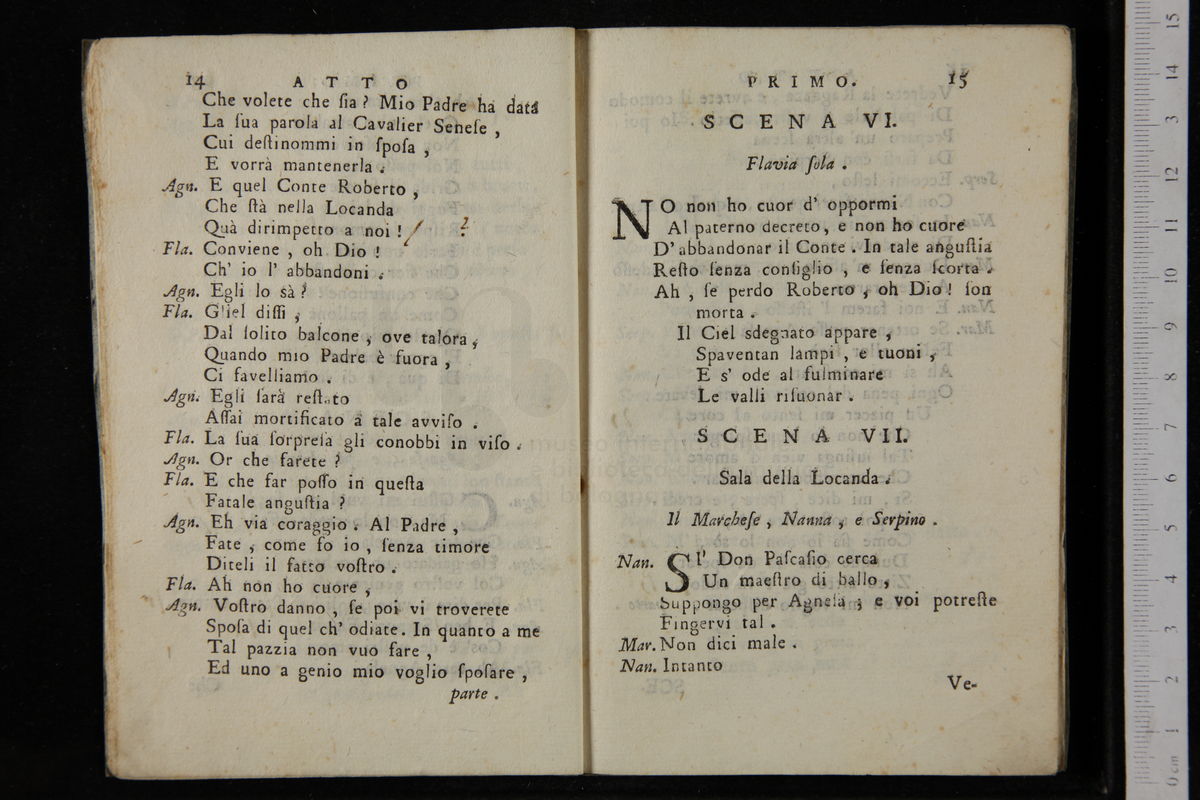 14 A T T O
Che volete che ſia? Mio Padre ha data
La ſua parola al Cavalier Seneſe,
Cui deſtinommi in ſpoſa,
E vorrà mantenerla.
Agn. E quel Conte Roberto,
Che ſtà nella Locanda
Quà dirimpetto a noi! / ?
Fla. Conviene, oh Dio!
Ch' io l' abbandoni.
Agn. Egli lo sà?
Fla. Gliel diſſi,
Dal ſolito balcone, ove talora,
Quando mio Padre è fuora,
Ci favelliamo.
Agn. Egli ſarà reſtato
Aſſai mortificato a tale avviſo.
Fla. La ſua ſorpreſa gli conobbi in viſo.
Agn. Or che farete?
Fla. E che far poſſo in queſta
Fatale anguſtia?
Agn. Eh via coraggio. Al Padre,
Fate, come fo io, ſenza timore
Diteli il fatto voſtro.
Fla. Ah non ho cuore,
Agn. Voſtro danno, ſe poi vi troverete
Spoſa di quel ch' odiate. In quanto a me
Tal pazzia non vuo fare,
Ed uno a genio mio voglio ſpoſare,
parte.
P R I M O. 15
S C E N A VI.
Flavia ſola.
NO non ho cuor d' oppormi
Al paterno decreto, e non ho cuore
D' abbandonar il Conte. In tale anguſtia
Reſto ſenza conſiglio, e ſenza ſcorta.
Ah, ſe perdo Roberto, oh Dio! ſon
morta.
Il Ciel sdegnato appare,
Spaventan lampi, e tuoni,
E s' ode al fulminare
Le valli riſuonar.
S C E N A VII.
Sala della Locanda.
Il Marcheſe, Nanna, e Serpino.
Nan. SI' Don Paſcaſio cerca
Un maeſtro di ballo,
Suppongo per Agneſa; e voi potreſte
Fingervi tal.
Mar. Non dici male.
Nan. Intanto
Ve-